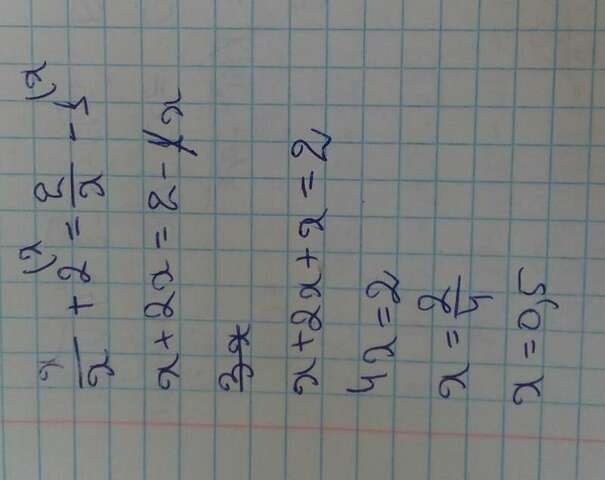 x/x + 2(x = 2/x - 1(x
x + 2x = 2 - x
3x
x + 2x + x = 2
4x = 2
x = 2/4
x = 0,5